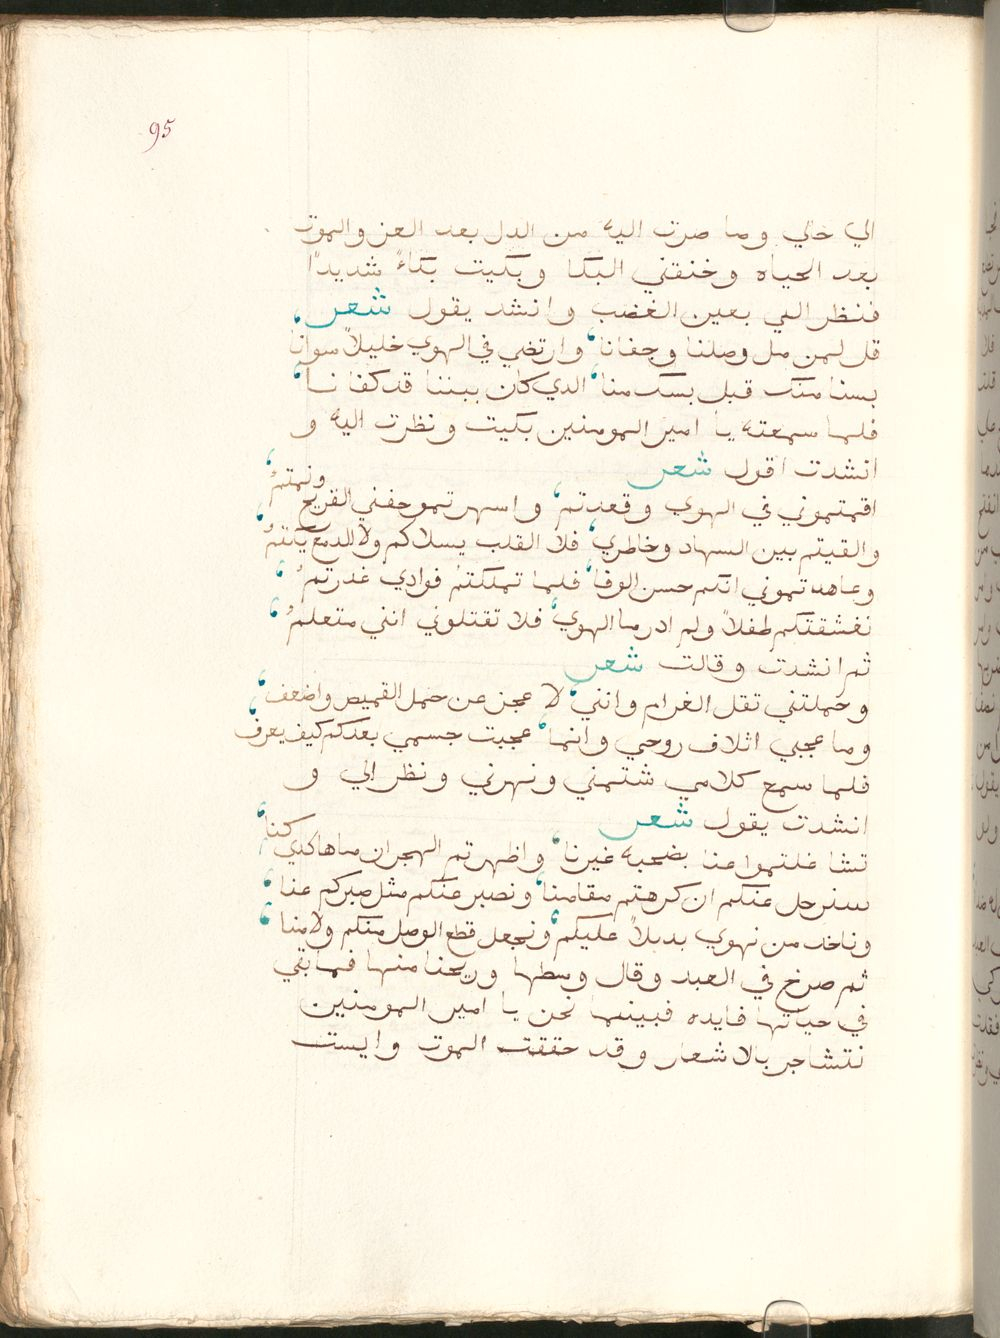 95
الي حالي وما صرت اليه من الدل بعد العز والموت
بعد الحياه وخنقني البكا وبكيت بكاءً شديدًا
فنظر الي بعين الغضب وانشد يقول شعر
قل لمن مل وصلنا وجفانا، وارتضي في الهوي خليلاً سوانا،
بسنا منك قبل بسك منا، الدي كان بيننا قد كفانا،
فلما سمعته يا امير المومنين بكيت ونظرت اليه و
انشدت اقول شعر
اقمتموني في الهوي وقعدتم، واسهرتمو جفني القريح ونمتمُ،
والقيتم بين السهاد وخاطري، فلا القلب يسلاكم ولا الدمع يكتمُ،
وعاهدتموني انكم حسن الوفا، فلما تملكتم فوادي غدرتمُ،
تعشقتكم طفلاً ولم ادر ما الهوي، فلا تقتلوني انني متعلمُ،
ثم انشدت وقالت شعر
وحملتني تقل الغرام وانني، لا عجز عن حمل القميص واضعف،
وما عجبي اتلاف روحي وانما، عجبت جسمي بعدكم كيف يعرف،
فلما سمع كلامي شتمني ونهرني ونظر الي و
انشدت يقول شعر
تشاغلتموا عنا بصحبه غيرنا، واظهرتم الهجران ما هاكدي كنا،
سنرحل عنكم ان كرهتم مقامنا، ونصبر عنكم مثل صبركم عنا،
وناخد من نهوي بديلاً عليكم، ونجعل قطع الوصل منكم ولا منا،
ثم صرخ في العبد وقال وسطها وريحنا منها فما بقي
في حياتها فايده فبينما نحن يا امير المومنين
نتشاجر بالاشعار وقد حققت الموت وايست